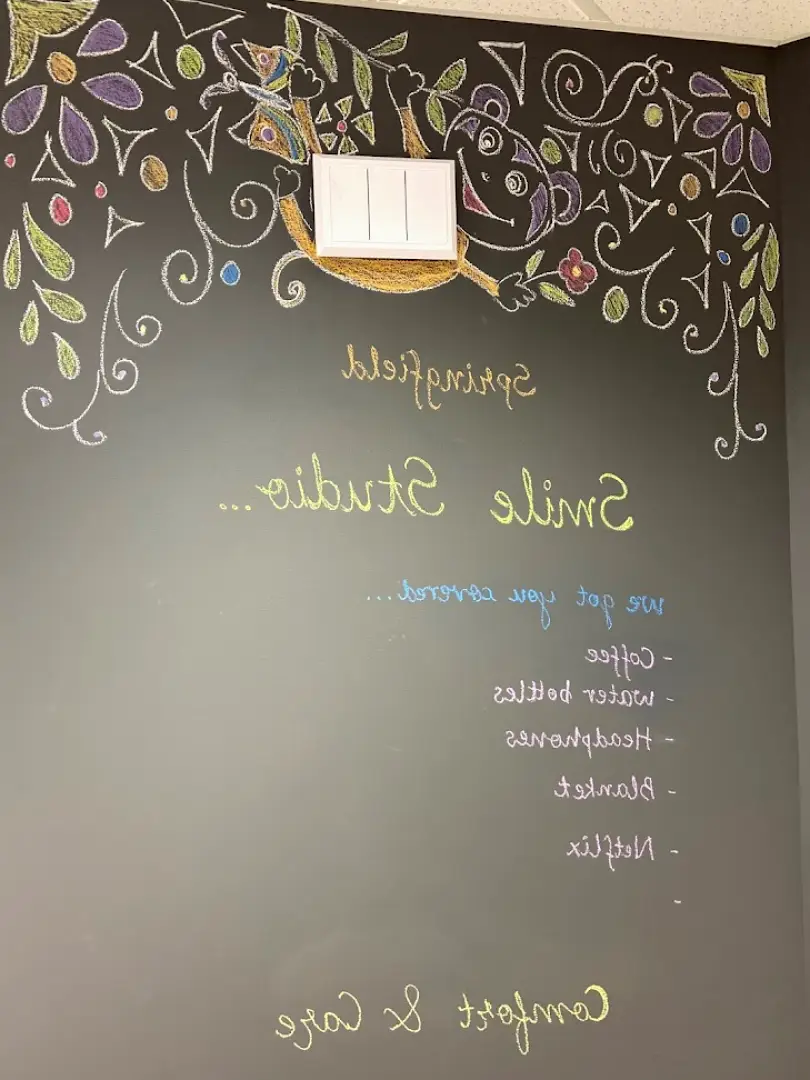 Springfield
Smile Studio...
we got you covered...
- Coffee
- water bottles
- Headphones
- Blanket
- Netflix
-
Comfort & Care